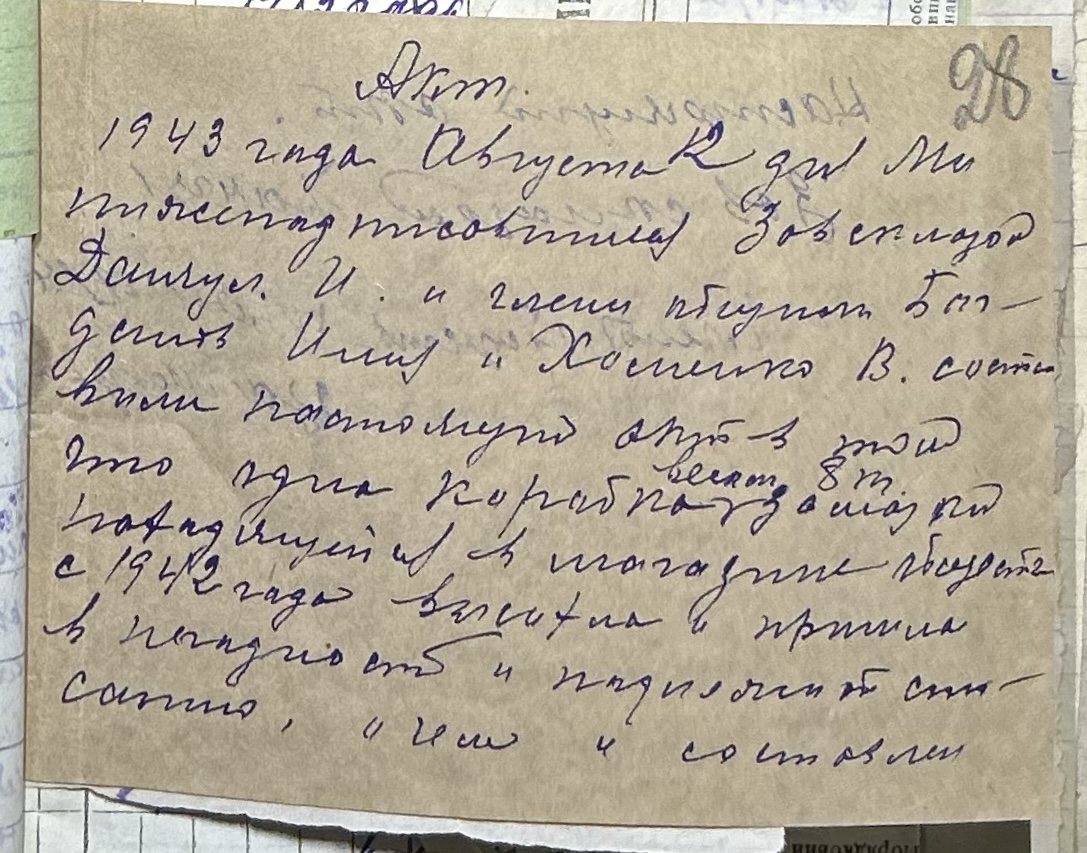 28
Акт.
1943 года Августа 12 дня Ми
нижеподписовшися Завскладом
Данчул. И. и члени общини Бог-
данов Илия и Хоменко В. соста
вили настоящий акт в том
что одна коробка весом 8 т. замазки
находящейся в магазине общества
с 1942 года высохла и пришла
в негодность и подлежит спи-
санию, и чем и составлен